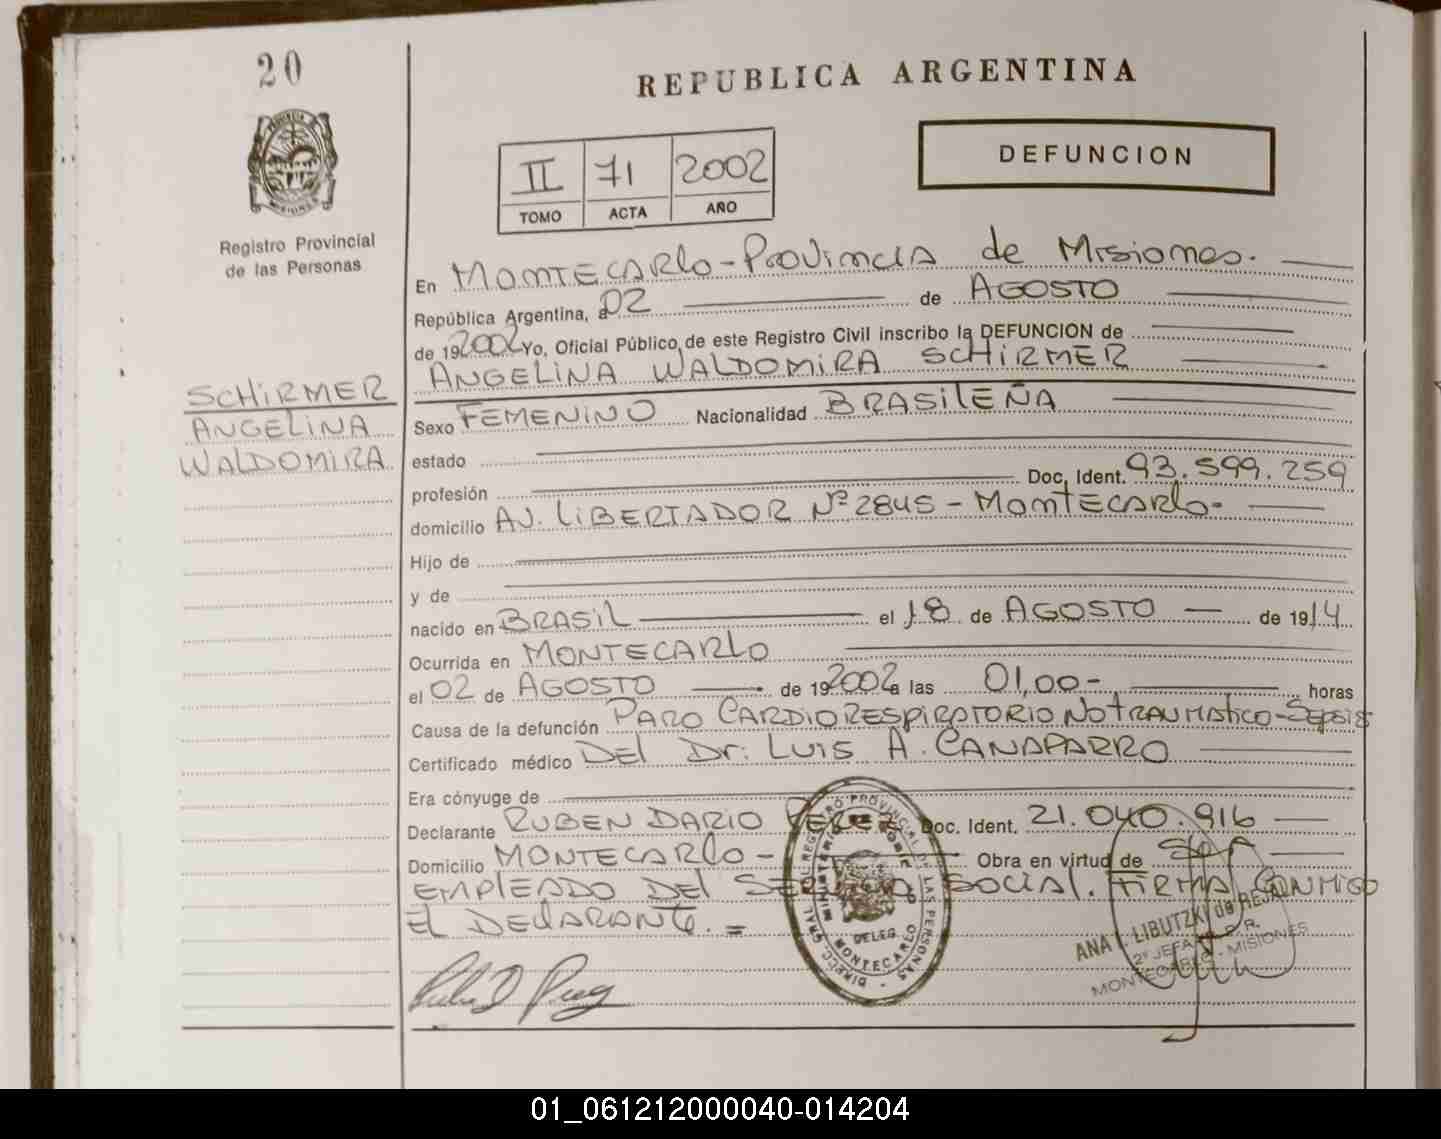 20
REPUBLICA ARGENTINA
PROVINCIA
MISIONES
Registro Provincial
de las Personas
II 71 2002
TOMO ACTA AÑO
DEFUNCION
En MONTECARLO - PROVINCIA de MISIONES.
República Argentina, a 02 de AGOSTO
de 192002 Yo, Oficial Público de este Registro Civil inscribo la DEFUNCION de
ANGELINA WALDOMIRA SCHIRMER
SCHIRMER
ANGELINA
WALDOMIRA
Sexo FEMENINO Nacionalidad BRASILEÑA
estado
profesión Doc. Ident. 93.599.259
domicilio AV. LIBERTADOR Nº 2845 - MONTECARLO-
Hijo de
y de
nacido en BRASIL el 18 de AGOSTO de 1914
Ocurrida en MONTECARLO
el 02 de AGOSTO de 192002 a las 01,00- horas
Causa de la defunción PARO CARDIORESPIRATORIO NO TRAUMATICO - SEPSIS
Certificado médico DEL Dr. LUIS A. CANAPARRO
Era cónyuge de
Declarante RUBEN DARIO PEREZ Doc. Ident. 21.040.916
Domicilio MONTECARLO - Obra en virtud de SER
EMPLEADO DEL SERVICIO SOCIAL. FIRMA CONMIGO
EL DECLARANTE. =
DIRECC. GRAL. DEL REGISTRO PROVINCIAL DE LAS PERSONAS
MINISTERIO DE GOBIERNO
DELEG.
MONTECARLO
ANA LIBUTZKI de REJALA
2º JEFA R.P.
MONTECARLO - MISIONES
01_061212000040-014204